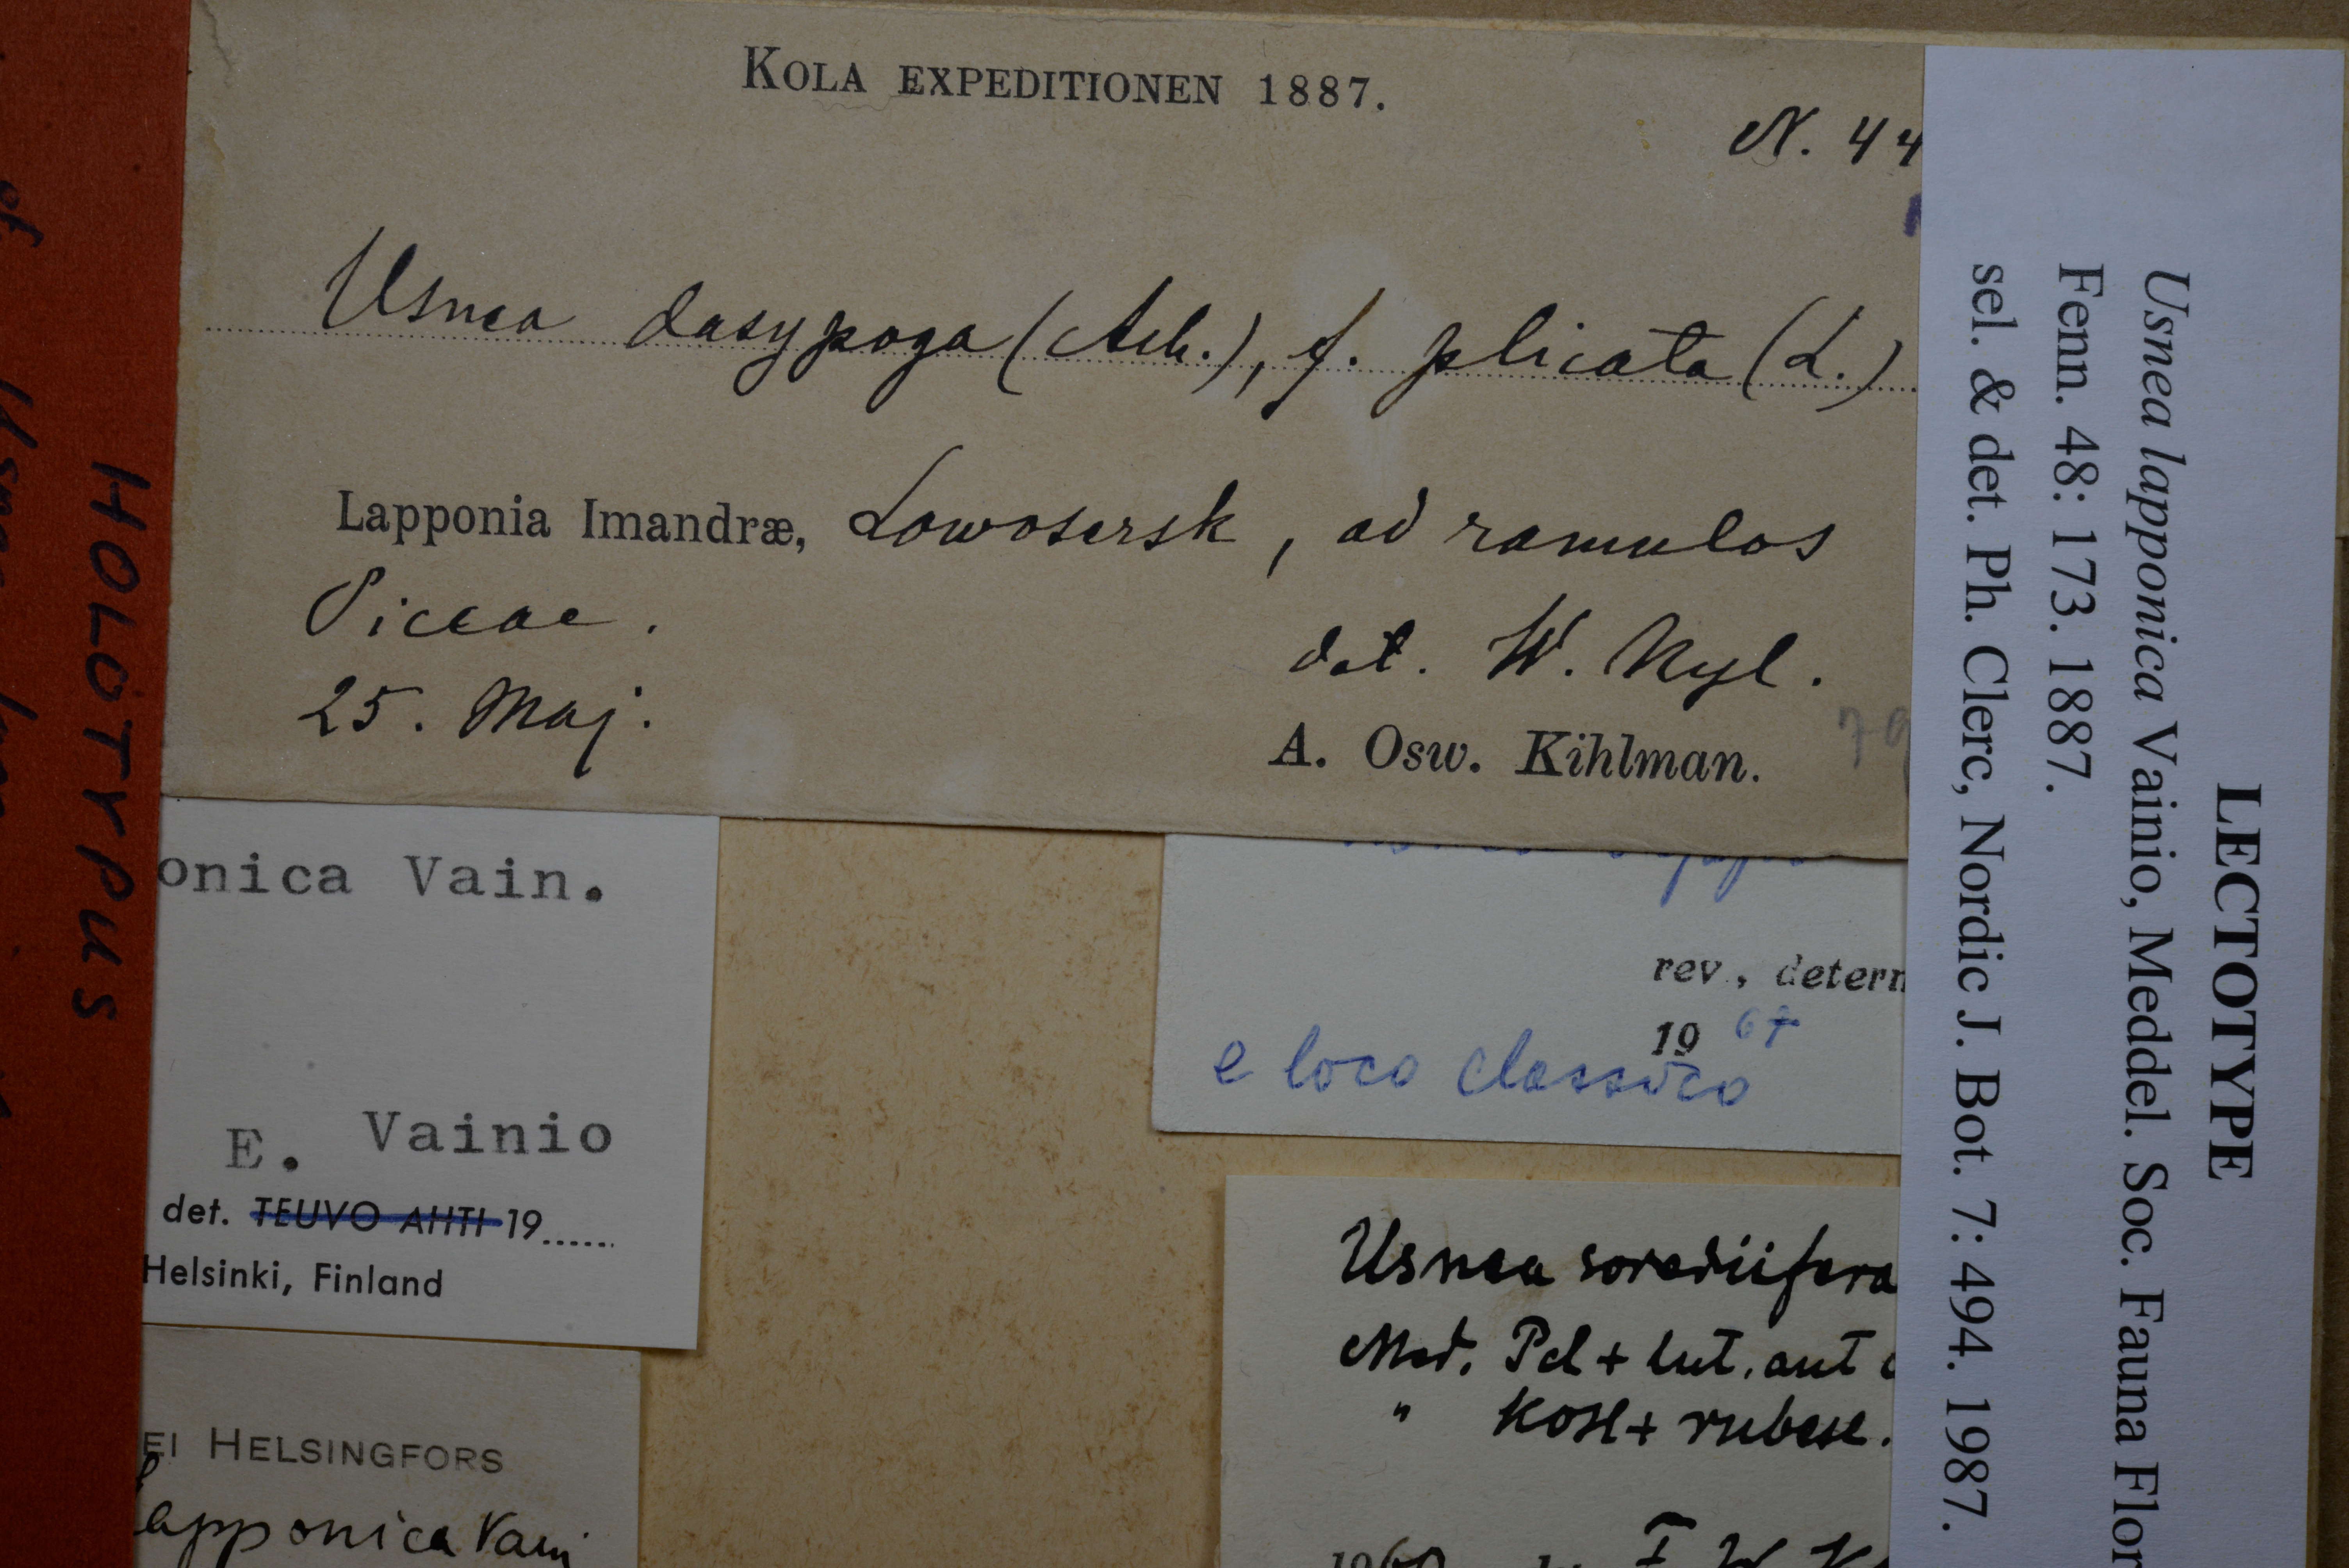 KOLA EXPEDITIONEN 1887.
N. 44
Usnea dasypoga (Ach.), f. plicata (L.)
Lapponia Imandræ, Lowosersk, ad ramulos
Piceae.
det. W. Nyl.
25. Maj.
A. Osw. Kihlman.
LECTOTYPE
Usnea lapponica Vainio, Meddel. Soc. Fauna Flor
Fenn. 48: 173. 1887.
sel. & det. Ph. Clerc, Nordic J. Bot. 7: 494. 1987.
HOLOTYPUS
of Usnea
onica Vain.
E. Vainio
det. TEUVO AHTI 19.....
Helsinki, Finland
EI HELSINGFORS
lapponica Vain
rev., determ
19 67
e loco classico
Usnea sorediifera
Med. Pd + lut. aut
" KOH + rubesc.